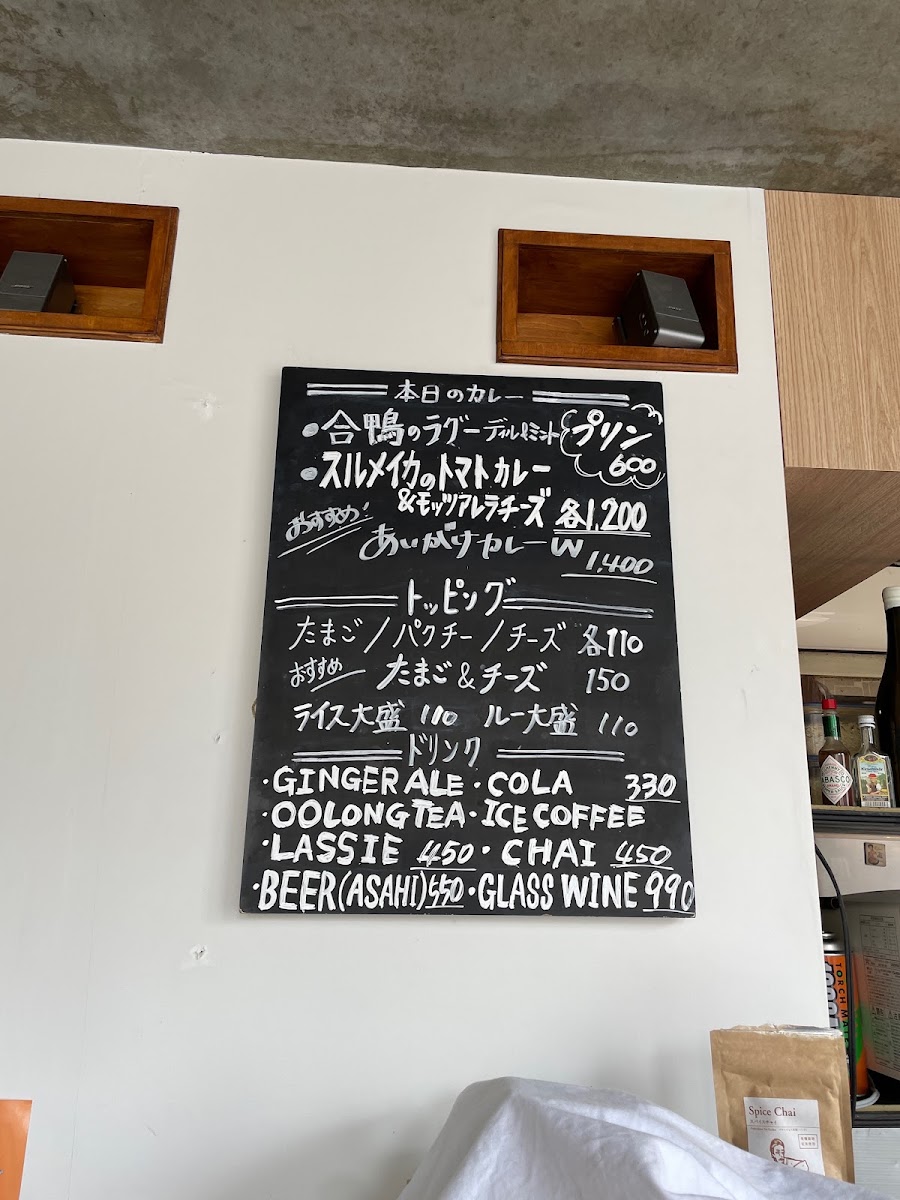 本日のカレー
・合鴨のラグーディル&ミント
プリン
600
・スルメイカのトマトカレー
&モッツアレラチーズ 各1,200
おすすめ!
あいがけカレーW
1,400
トッピング
たまご/パクチー/チーズ 各110
おすすめ たまご&チーズ 150
ライス大盛 110 ルー大盛 110
ドリンク
・GINGER ALE・COLA 330
・OOLONG TEA・ICE COFFEE
・LASSIE 450・CHAI 450
・BEER(ASAHI)550・GLASS WINE 990
TABASCO
TORCH
Spice Chai
スパイスチャイ